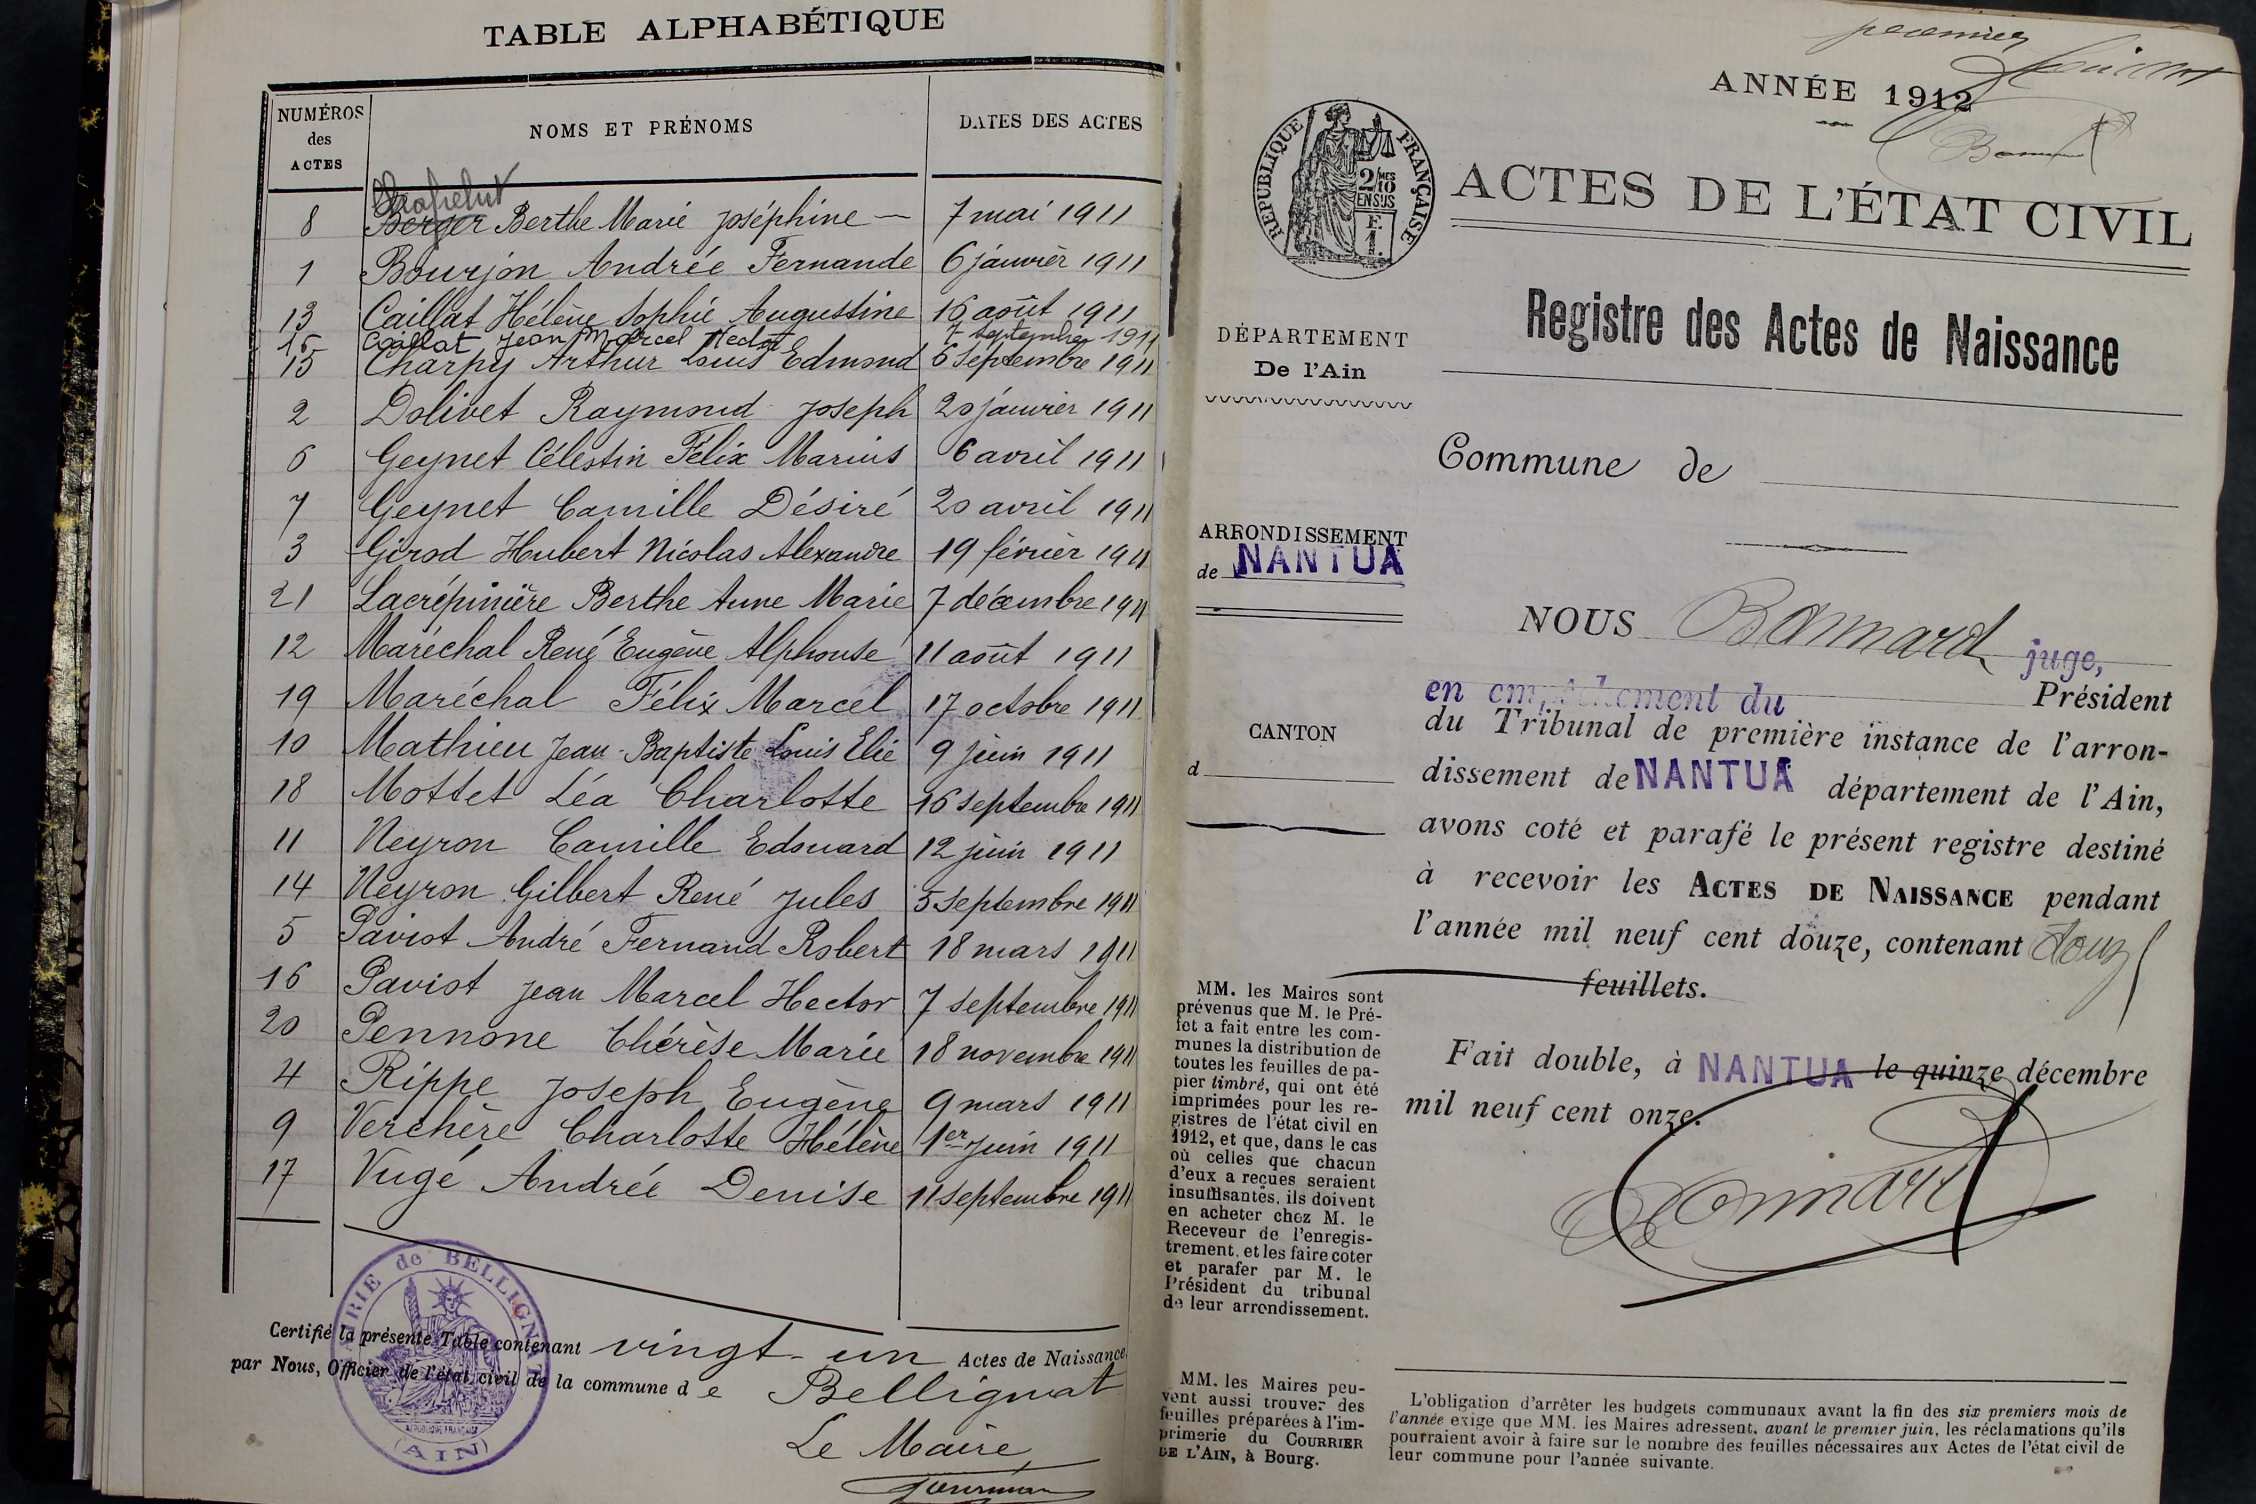 TABLE ALPHABÉTIQUE
NUMÉROS des ACTES
NOMS ET PRÉNOMS
DATES DES ACTES
8 Berger Berthe Marie Joséphine — 7 mai 1911
1 Bourjon Andrée Fernande 6 janvier 1911
13 Caillat Hélène Sophie Augustine 16 août 1911
16 Caillat Jean Marcel Hector 7 septembre 1911
15 Charpy Arthur Louis Edmond 6 septembre 1911
2 Dolivet Raymond Joseph 20 janvier 1911
6 Geynet Célestin Félix Marius 6 avril 1911
7 Geynet Camille Désiré 20 avril 1911
3 Girod Hubert Nicolas Alexandre 19 février 1911
21 Lacrépinière Berthe Anne Marie 7 décembre 1911
12 Maréchal René Eugène Alphonse 11 août 1911
19 Maréchal Félix Marcel 17 octobre 1911
10 Mathieu Jean-Baptiste Louis Elie 9 juin 1911
18 Mottet Léa Charlotte 16 septembre 1911
11 Neyron Camille Edouard 12 juin 1911
14 Neyron Gilbert René Jules 5 septembre 1911
5 Paviot André Fernand Robert 18 mars 1911
16 Paviot Jean Marcel Hector 7 septembre 1911
20 Pennone Thérèse Marie 18 novembre 1911
4 Rippe Joseph Eugène 9 mars 1911
9 Verchère Charlotte Hélène 1er juin 1911
17 Vugé Andrée Denise 11 septembre 1911
MAIRIE de BELLIGNAT
RÉPUBLIQUE FRANÇAISE
(AIN)
Certifié la présente Table contenant vingt-un Actes de Naissance
par Nous, Officier de l'état civil de la commune de Bellignat
Le Maire,
premier
feuillet
ANNÉE 1912
RÉPUBLIQUE FRANÇAISE
2/MES 10 EN SUS
F. 1.
ACTES DE L'ÉTAT CIVIL
Registre des Actes de Naissance
DÉPARTEMENT
De l'Ain
Commune de
ARRONDISSEMENT
de NANTUA
CANTON
d
NOUS Bonnard juge,
en empêchement du Président
du Tribunal de première instance de l'arron-
dissement de NANTUA département de l'Ain,
avons coté et parafé le présent registre destiné
à recevoir les ACTES DE NAISSANCE pendant
l'année mil neuf cent douze, contenant douze
feuillets.
Fait double, à NANTUA le quinze décembre
mil neuf cent onze.
Bonnard
MM. les Maires sont
prévenus que M. le Pré-
fet a fait entre les com-
munes la distribution de
toutes les feuilles de pa-
pier timbré, qui ont été
imprimées pour les re-
gistres de l'état civil en
1912, et que, dans le cas
où celles que chacun
d'eux a reçues seraient
insuffisantes, ils doivent
en acheter chez M. le
Receveur de l'enregis-
trement, et les faire coter
et parafer par M. le
Président du tribunal
de leur arrondissement.
MM. les Maires peu-
vent aussi trouver des
feuilles préparées à l'im-
primerie du COURRIER
DE L'AIN, à Bourg.
L'obligation d'arrêter les budgets communaux avant la fin des six premiers mois de
l'année exige que MM. les Maires adressent, avant le premier juin, les réclamations qu'ils
pourraient avoir à faire sur le nombre des feuilles nécessaires aux Actes de l'état civil de
leur commune pour l'année suivante.